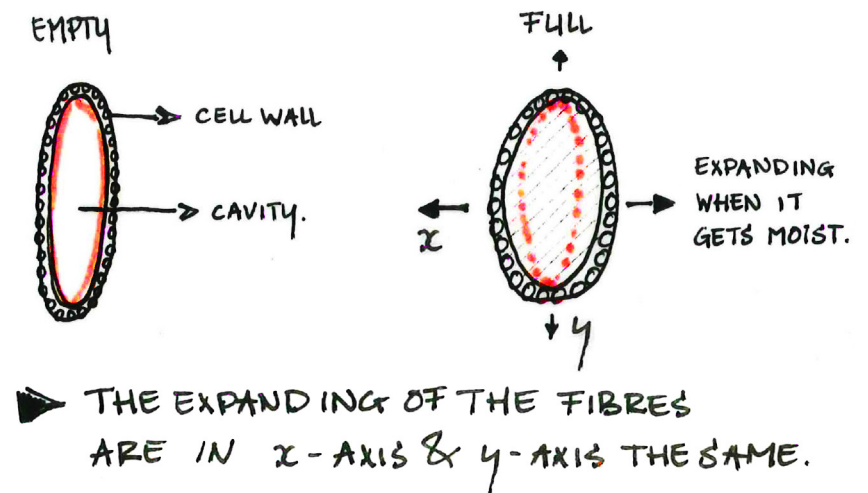 EMPTY
CELL WALL
CAVITY.
FULL
x
EXPANDING
WHEN IT
GETS MOIST.
y
THE EXPANDING OF THE FIBRES
ARE IN x-AXIS & y-AXIS THE SAME.